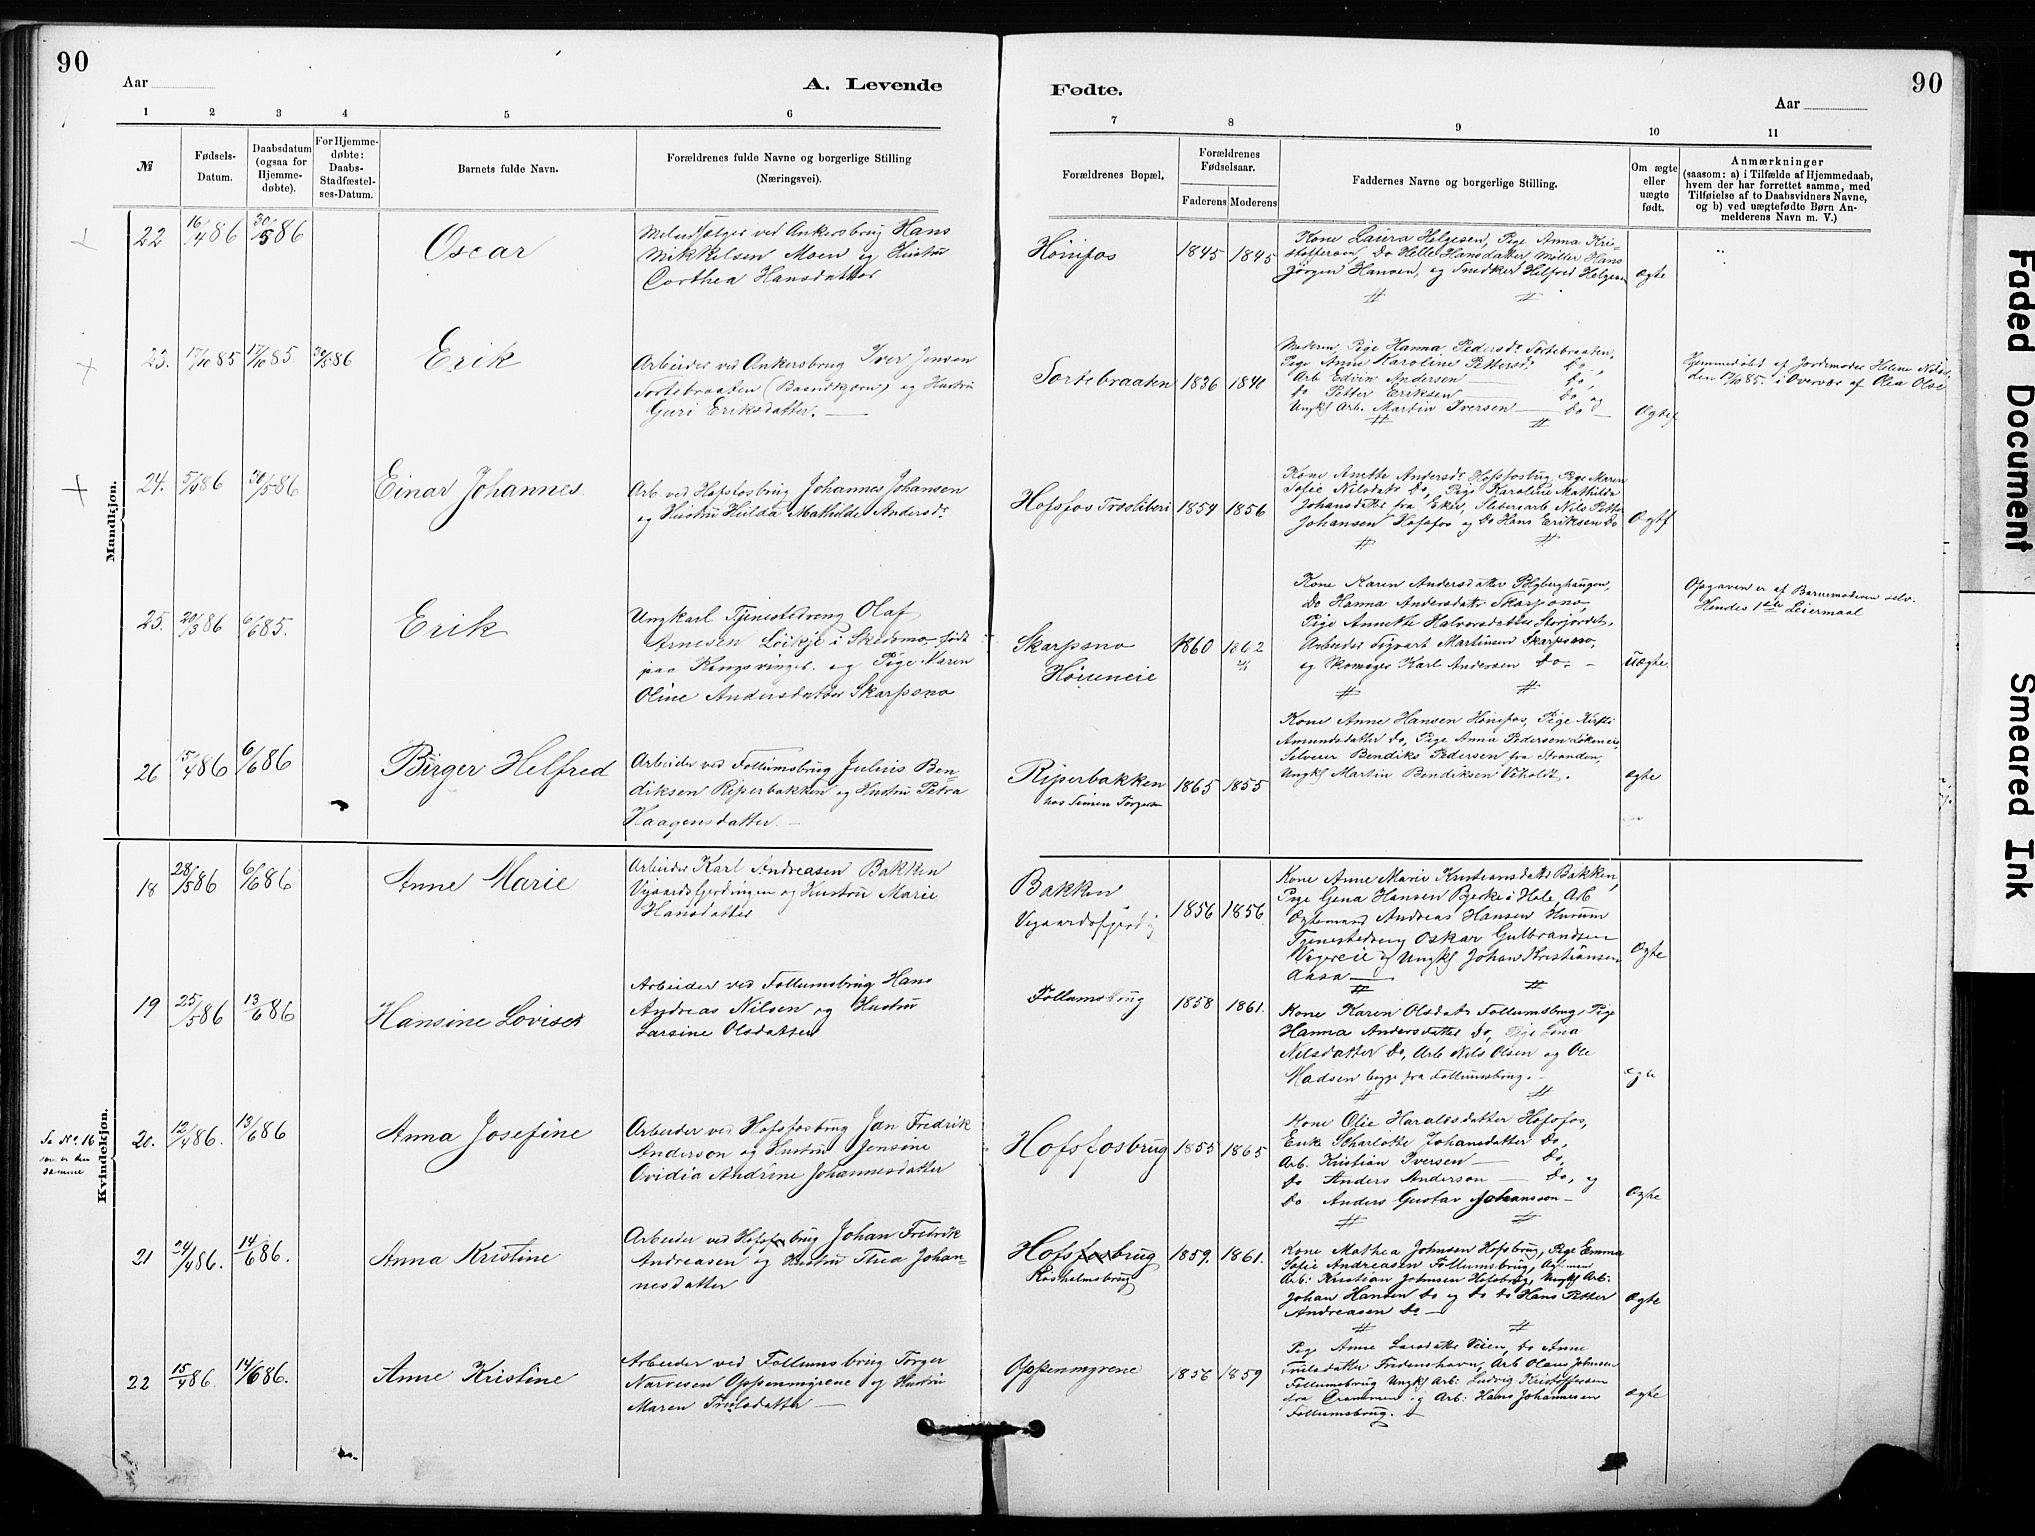 90
Aar
A. Levende
1 2 3 4 5 6
№
Fødsels-Datum.
Daabsdatum (ogsaa for Hjemme-døbte).
For Hjemme-døbte: Daabs-Stadfæstel-ses-Datum.
Barnets fulde Navn.
Forældrenes fulde Navne og borgerlige Stilling
(Næringsvei).
Mandkjøn.
22 16/4 86 30/5 86
Oscar
ved Ankersbrug Hans
Mikkelsen Moen og Hustru
Dorthea Hansdatter
23. 17/10 85 17/10 85. 30/5 86
Erik
Arbeider ved Ankersbrug Iver Jensen
Sortebraaten (Brandkjern) og Hustru
Guri Eriksdatter.
24. 5/4 86 30/5 86
Einar Johannes
Arb. ved Hofsfosbrug Johannes Johansen
og Hustru Hilda Mathilde Andersdr
25. 20/3 86 6/6 85.
Erik
Ungkarl Tjenestedreng Olaf
Arnesen Løikje i Skedsmo, født
paa Kongsvinger og Pige Karen
Oline Andersdatter Skarpsno
26 15/4 86 6/6 86
Birger Helfred
Arbeider ved Follumsbrug Julius Ben-
diksen Riperbakken og Hustru Petra
Haagensdatter.
Kvindekjøn.
18 28/5 86 6/6 86
Anne Marie
Arbeider Karl Andreasen Bakken
Vegaardsfjerdingen og Hustru Marie
Hansdatter
19 25/5 86 13/6 86
Hansine Lovise
Arbeider ved Follumsbrug Hans
Andreas Nilsen og Hustru
Larsine Olsdatter
Se No. 16
som er den
samme
20. 12/4 86. 13/6 86
Anna Josefine
Arbeider ved Hofsfosbrug Jan Fredrik
Anderson og Hustru Jensine
Ovidia Andrine Johannesdatter
21 24/4 86. 14/6 86.
Anna Kristine
Arbeider ved Hofsfosbrug Johan Fredrik
Andreasen og Hustru Thea Johan-
nesdatter
22 15/4 86. 14/6 86.
Anne Kristine
Arbeider ved Follumsbrug Torger
Narvesen Oppenmyrene og Hustru
Maren Trulsdatter
90
Fødte.
Aar
7 8 9 10 11
Forældrenes Bopæl.
Forældrenes Fødselsaar.
Faderens Moderens
Faddernes Navne og borgerlige Stilling.
Om ægte eller uægte født.
Anmærkninger
(saasom: a) i Tilfælde af Hjemmedaab,
hvem der har forrettet samme, med
Tilføielse af to Daabsvidners Navne,
og b) ved uægtefødte Børn An-
melderens Navn m. V.)
Hønefos 1845 1845
Kone Laura Helgesen, Pige Anna Kri-
stoffersen, Do Helle Hansdatter, Møller Hans
Jørgen Hansen, og Snedker Helfred Helgesen
Ægte
Sortebraaten 1836 1840
Moderen, Pige Hanna Pedersdr Sortebraaten,
Pige Anne Karoline Pettersdr Do.,
Arb Edvin Andersen Do,
Do Petter Eriksen Do og
Ungkl Arb. Martin Iversen Do
Ægte
Hjemmedøbt af Jordmoder Helene
den 17/10 85. i Overvær af Olea
Hofsfos Træsliberi 1854 1856
Kone Anette Andersdr Hofsfosbrug, Pige Karen
Sofie Nilsdatr Do, Pige Karoline Mathilda
Johansdatter fra Eker, Sliberiarb Nils Petter
Johansen Hofsfos og Do Hans Eriksen Do
Ægte
Skarpsno
Hønneneie
1860 1862
Kone Karen Andersdatter
Do Hanna Andersdatr Skarpsno
Pige Annette Halvorsdatter Storjordet,
Arbeider Sigvart Martinsen Skarpsno,
og Skomager Karl Andersen Do.
Uægte.
Opgaven er af Barnemoderen selv.
Hendes 1ste Leiermaal
Riperbakken
hos Simen Torgersen
1865 1855
Kone Anne Hansen Hønefos, Pige Kirsti
Amundsdatter Do, Pige Anna Pedersen
Selveier Bendiks Pedersen fra Stranden,
Ungkl Martin Bendiksen Veholdt.
Ægte
Bakken
Vegaardsfjerdig
1856 1856
Kone Anne Marie Kristiansdatter Bakken,
Pige Gena Hansen Bjerke i Hole, Arb
Ægtemand Andreas Hansen Hurum
Tjenestedreng Oskar Gulbrandsen
og Ungkl Johan Kristiansen
Aasa
Ægte
Follumsbrug 1858 1861.
Kone Karen Olsdatr Follumsbrug, Pige
Hanna Andersdatter Do, Pige Lena
Nilsdatter Do, Arb Nils Olsen og Ole
Madsen begge fra Follumsbrug.
Ægte
Hofsfosbrug 1855 1865
Kone Olie Haraldsdatter Hofsfos,
Enk Scharlotte Johansdatter Do,
Arb. Kristian Iversen Do,
Do Anders Anderson Do, og
Do Anders Gustav Johansson
Ægte
Hofsfosbrug
Rosholmsbrug
1859. 1861.
Kone Mathea Johnsen Hofsbrug, Pige Emma
Sofie Andreasen Follumsbrug, Ægtemn
Arb: Kristian Johnsen Hofsbrug, Ungkl Arb:
Johan Hansen Do og Do Do Hans Petter
Andreasen Do
Ægte
Oppenmyrene 1856 1859
Pige Anne Larsdatter Veien, Do Anne
Trulsdatter Fredenshavn, Arb Olaus Johnsen
Follumsbrug Ungkl Arb: Ludvig Kristoffersen
fra Drammen og Arb: Hans Johannesen
Follumsbrug.
Ægte
Faded Document
Smeared Ink